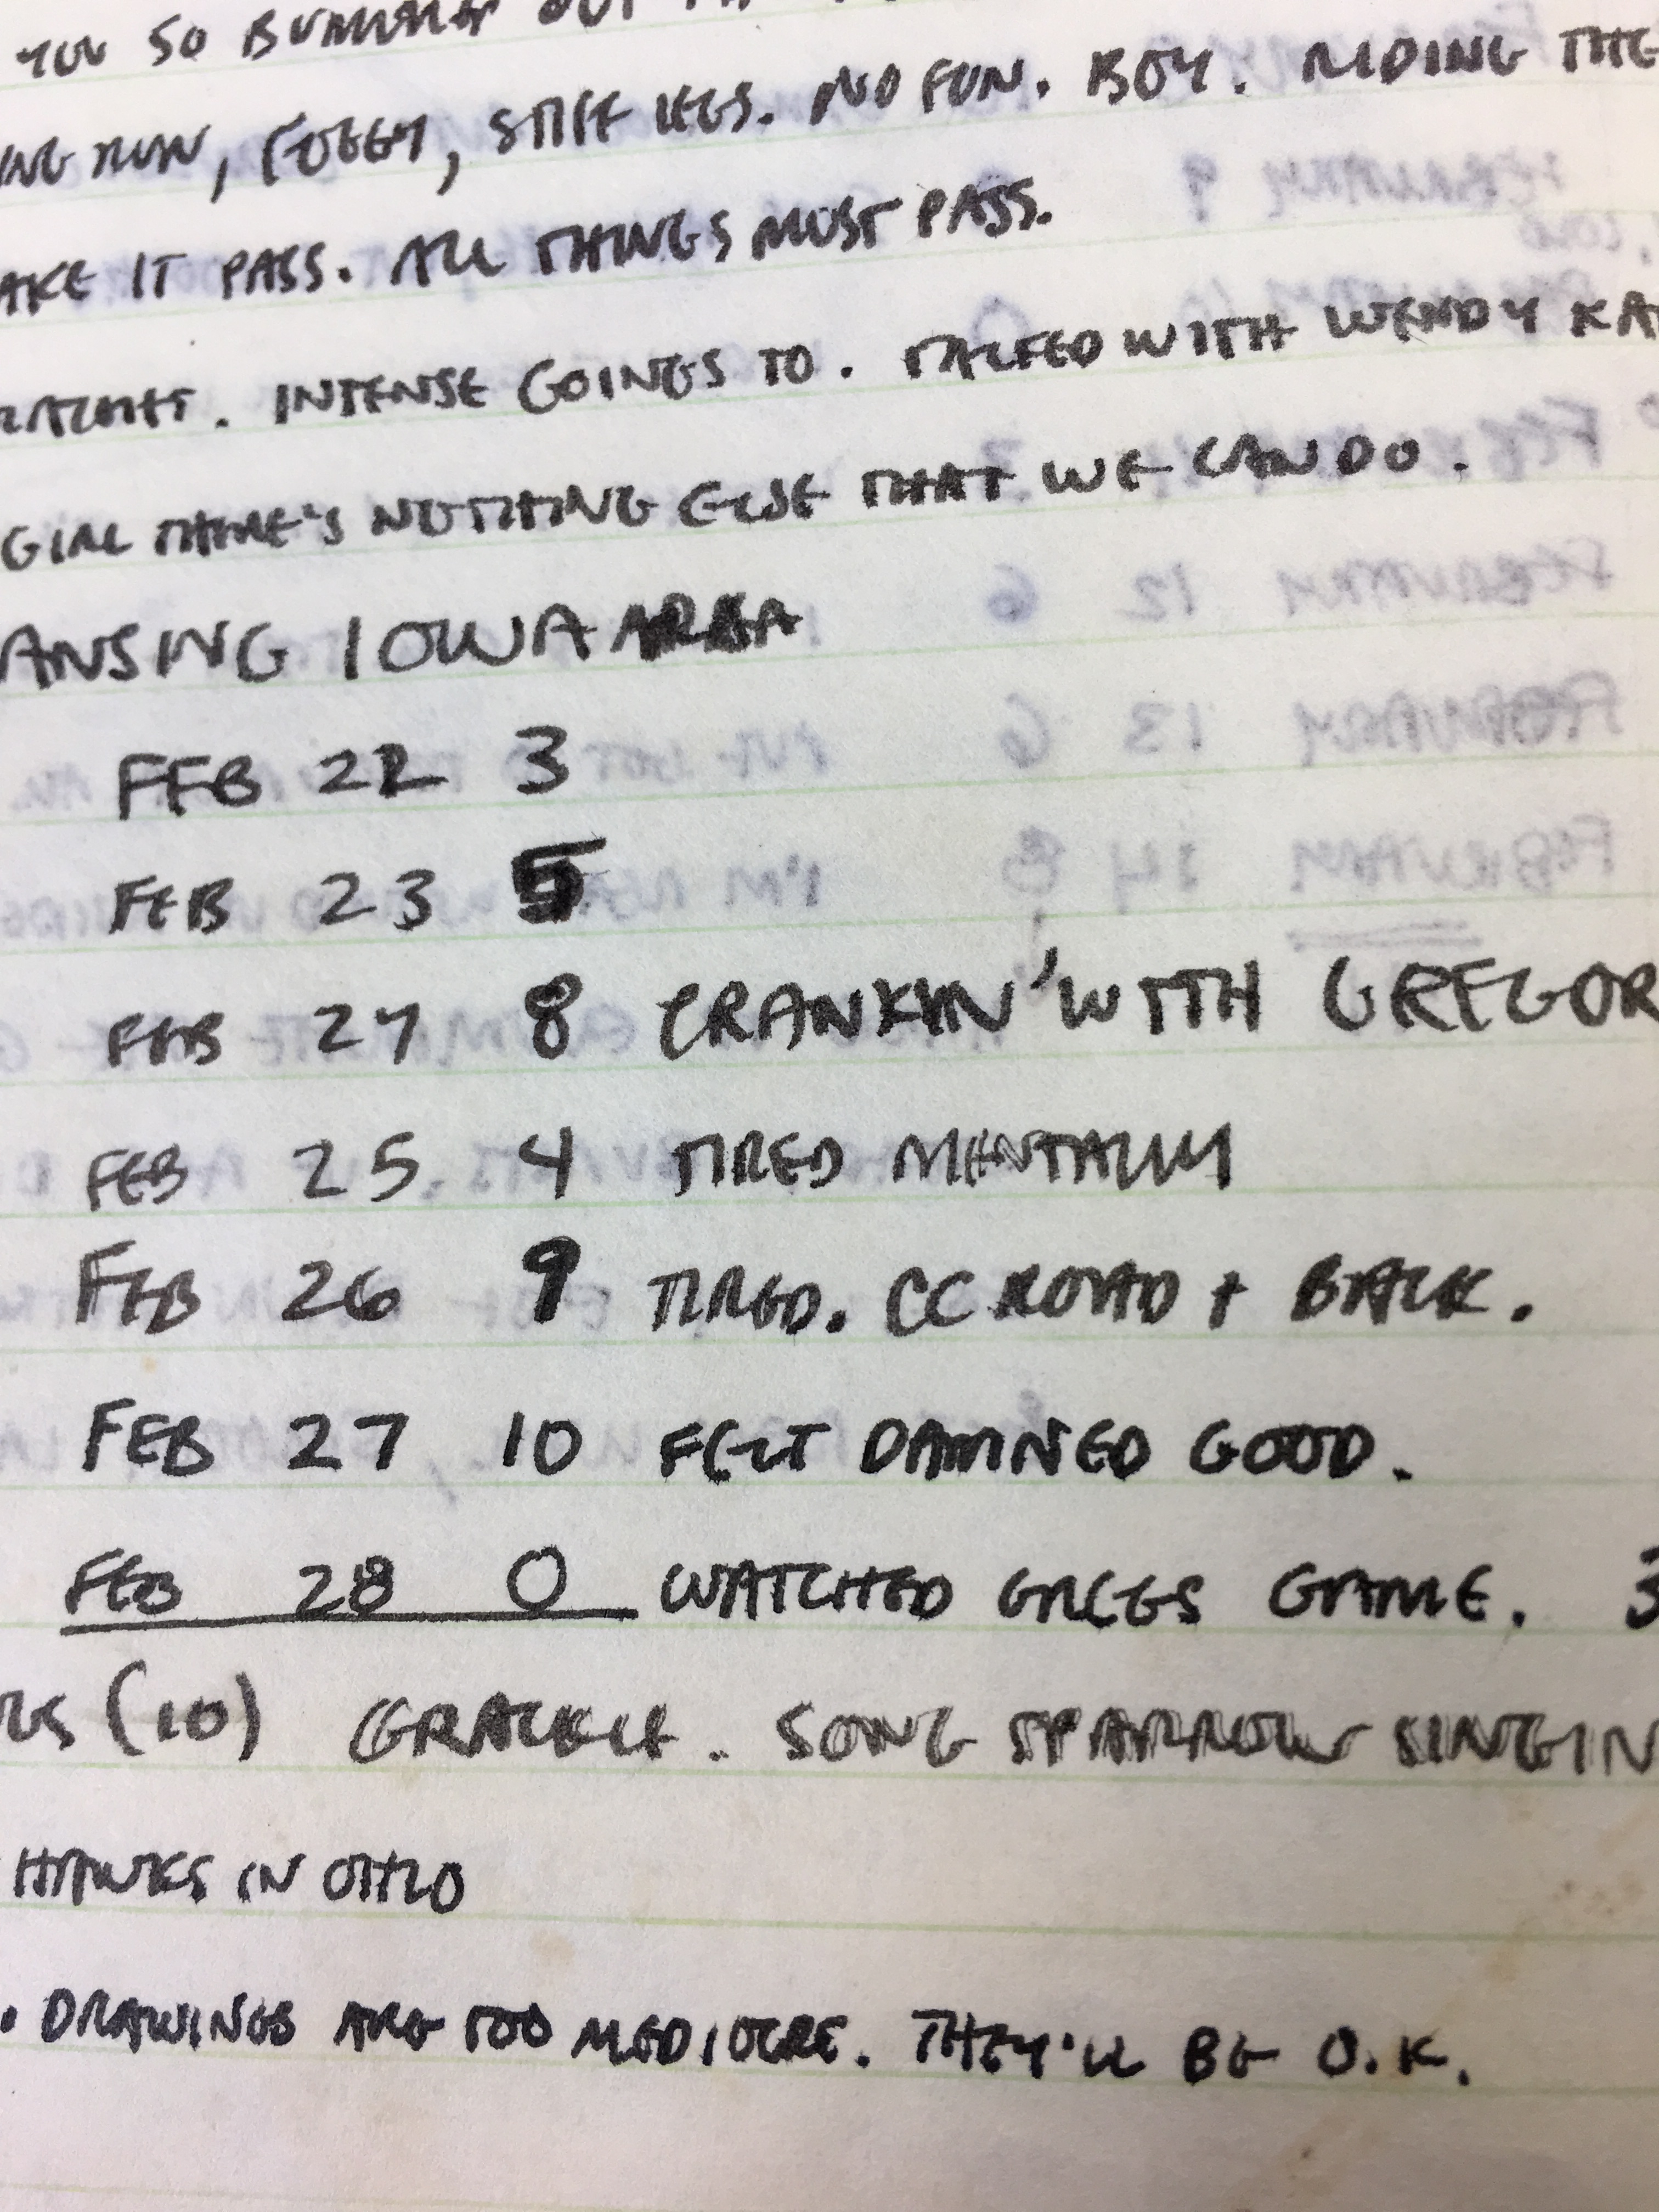 YOU SO BUMMED OUT
ING RUN, FOGGY, STIFF LEGS. NO FUN. BOY. RIDING THE
AKE IT PASS. ALL THINGS MUST PASS.
INTENSE GOINGS TO. TALKED WITH WENDY KA
GIRL THERE'S NOTHING ELSE THAT WE CAN DO.
ANSING IOWA AREA
FEB 22 3
FEB 23 5
FEB 24 8 CRANKIN' WITH GREGOR
FEB 25 4 TIRED MENTALLY
FEB 26 9 TIRED. CC ROAD + BACK.
FEB 27 10 FELT DAMNED GOOD.
FEB 28 0 WATCHED GREGS GAME. 3
(10) GRACKLE. SONG SPARROW SINGIN
HAWKS IN OHIO
. DRAWINGS ARE TOO MEDIOCRE. THEY'LL BE O.K.